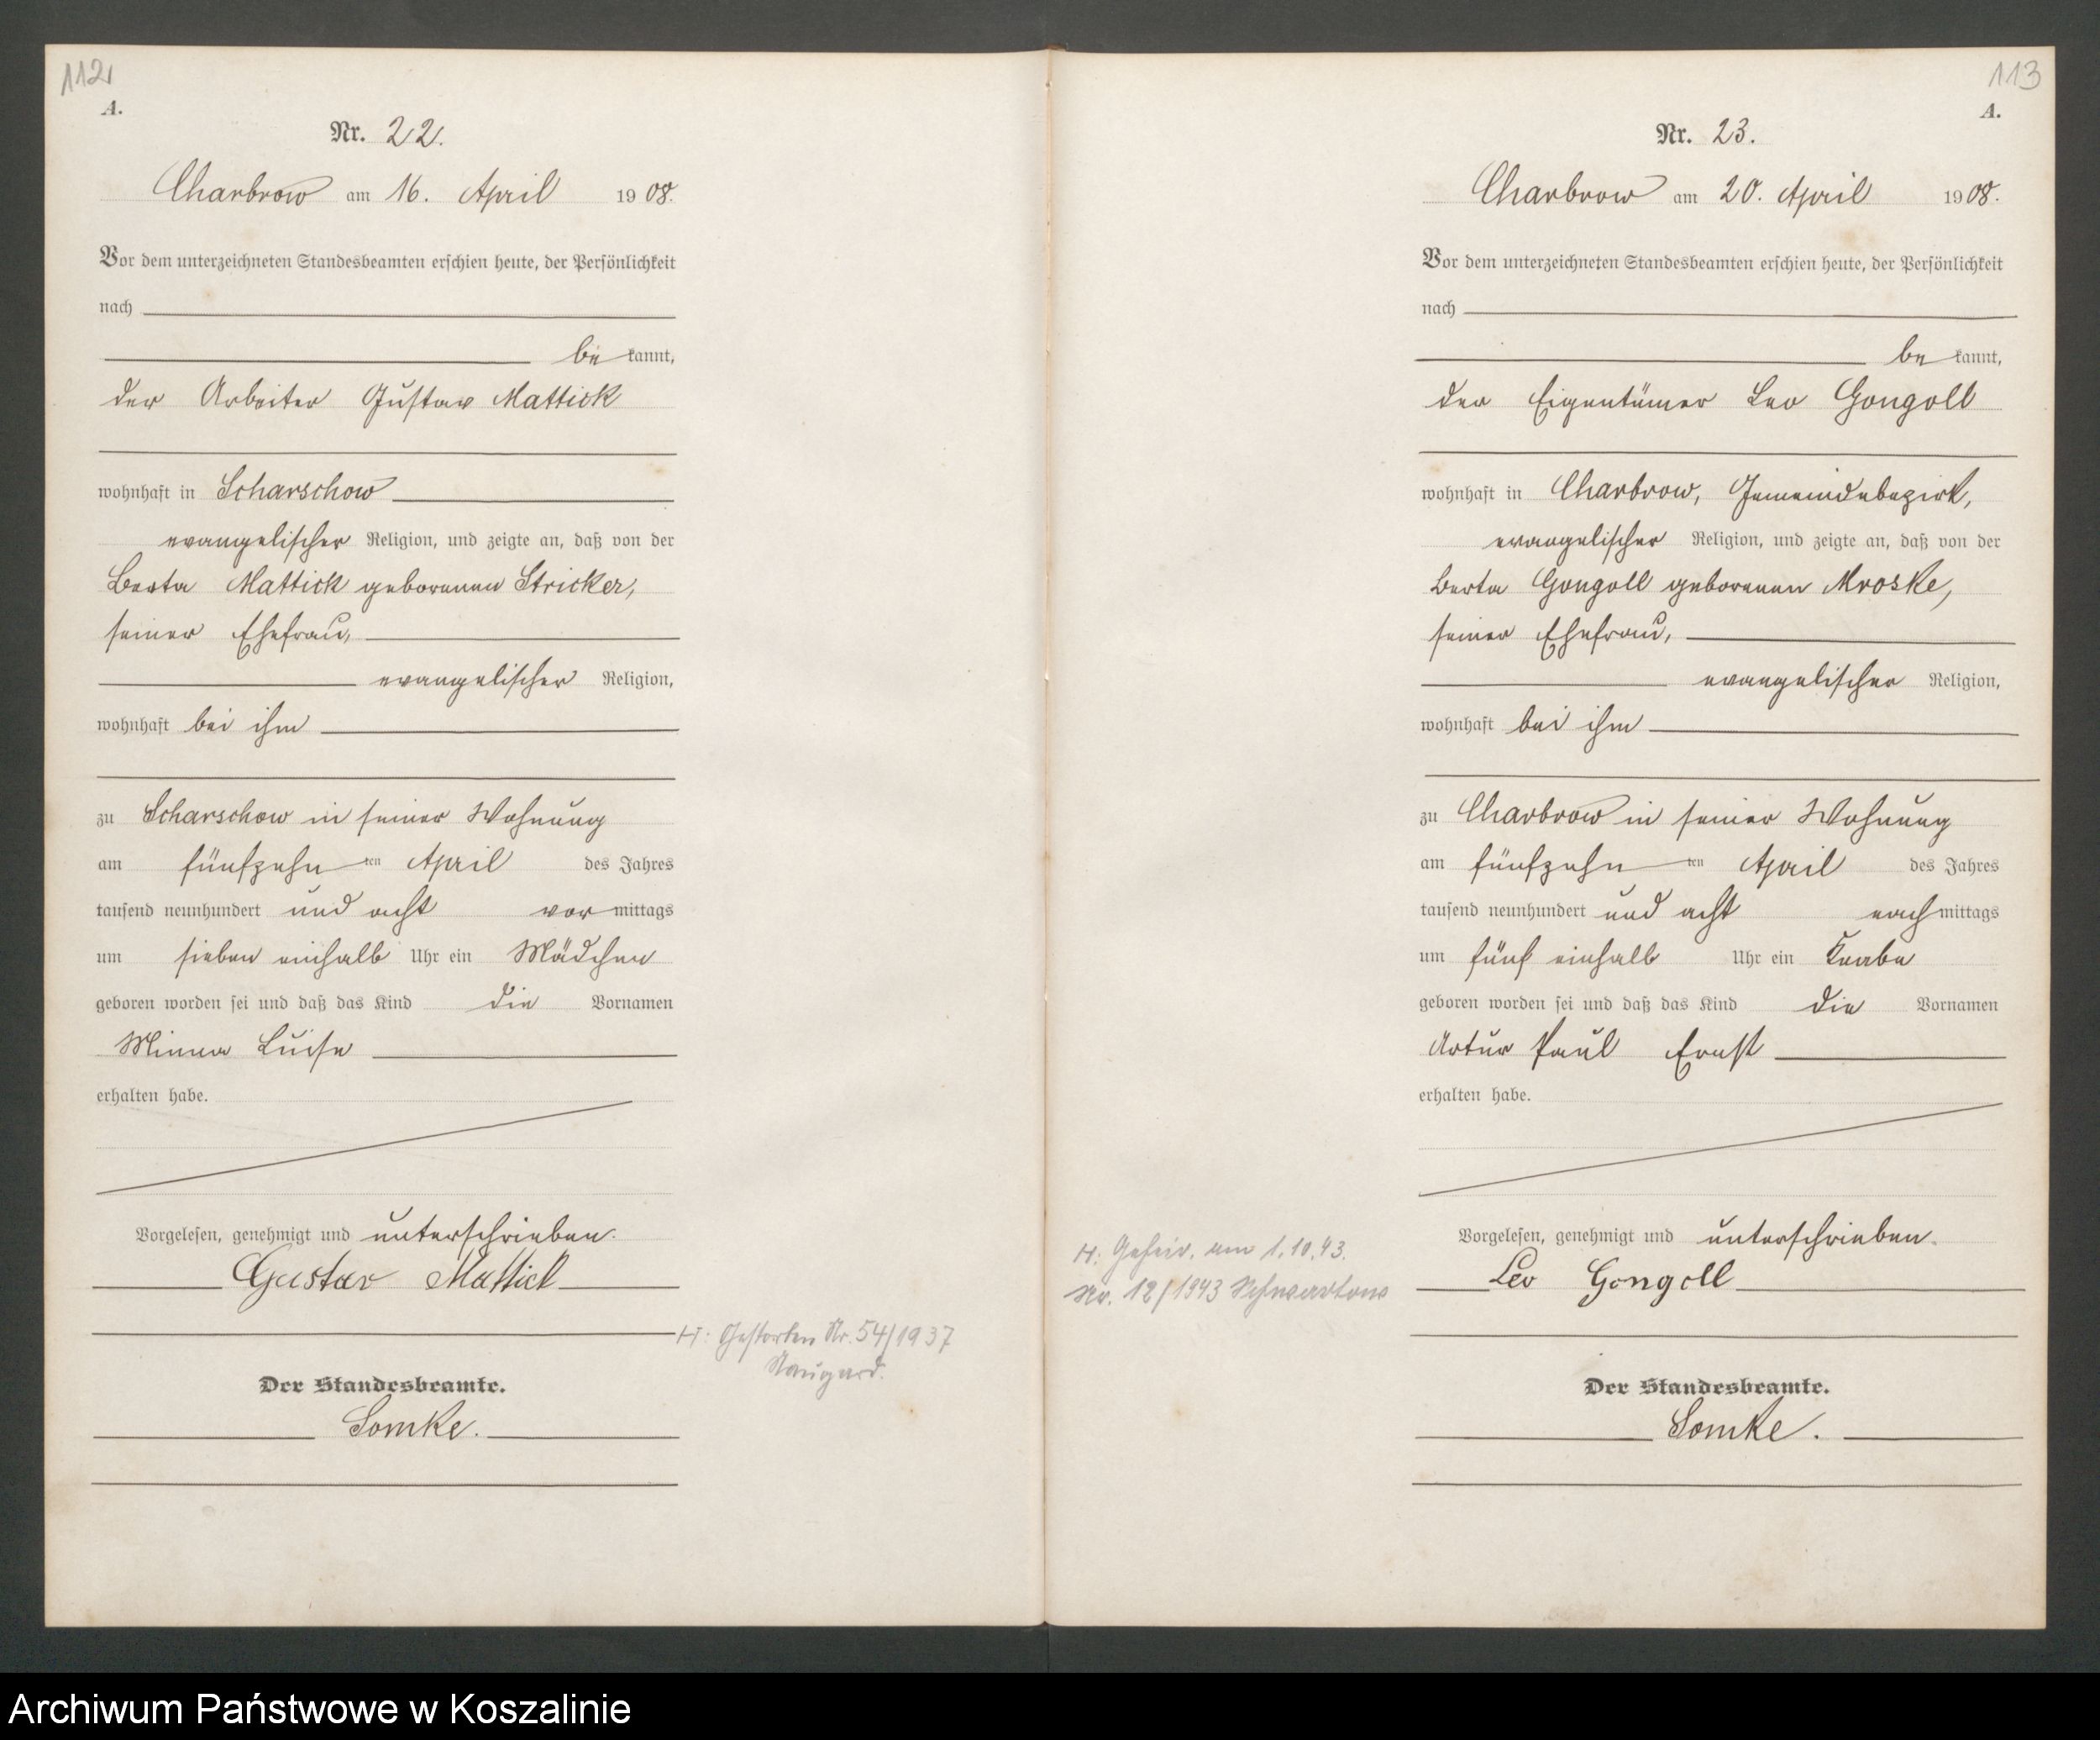 112
A.
Nr. 22.
Charbrow am 16. April 1908.
Vor dem unterzeichneten Standesbeamten erschien heute, der Persönlichkeit
nach
be kannt,
der Arbeiter Gustav Mattick
wohnhaft in Scharschow
evangelischer Religion, und zeigte an, daß von der
Berta Mattick geborenen Stricker,
seiner Ehefrau,
evangelischer Religion,
wohnhaft bei ihm
zu Scharschow in seiner Wohnung
am fünfzehn ten April des Jahres
tausend neunhundert und acht vor mittags
um sieben einhalb Uhr ein Mädchen
geboren worden sei und daß das Kind die Vornamen
Minna Luise
erhalten habe.
Vorgelesen, genehmigt und unterschrieben.
Gustav Mattick
H: Gestorben Nr. 54/1937
Naugard.
Der Standesbeamte.
Somke.
113
A.
Nr. 23.
Charbrow am 20. April 1908.
Vor dem unterzeichneten Standesbeamten erschien heute, der Persönlichkeit
nach
be kannt,
der Eigentümer Leo Gongoll
wohnhaft in Charbrow, Gemeindebezirk,
evangelischer Religion, und zeigte an, daß von der
Berta Gongoll geborenen Mroske,
seiner Ehefrau,
evangelischer Religion,
wohnhaft bei ihm
zu Charbrow in seiner Wohnung
am fünfzehn ten April des Jahres
tausend neunhundert und acht nach mittags
um fünf einhalb Uhr ein Knabe
geboren worden sei und daß das Kind die Vornamen
Artur Paul Ernst
erhalten habe.
Vorgelesen, genehmigt und unterschrieben.
H: Geheir. am 1.10.43.
Nr. 12/1943 Schwartow
Leo Gongoll
Der Standesbeamte.
Somke.
Archiwum Państwowe w Koszalinie